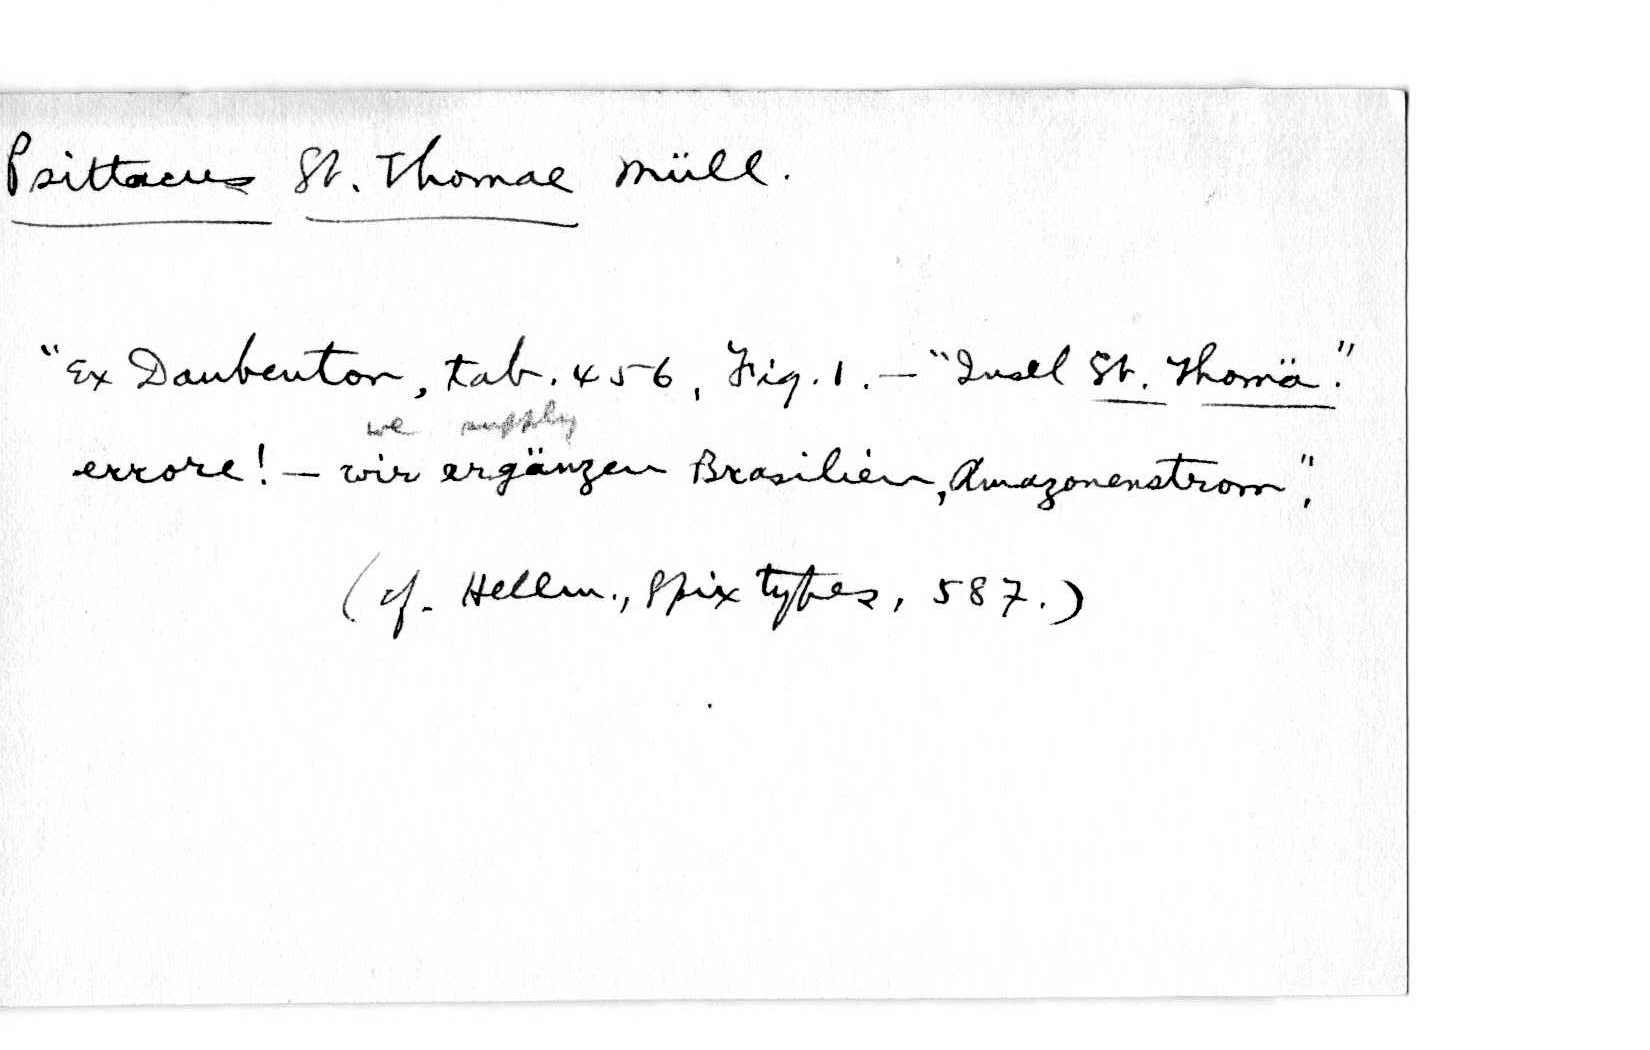 Psittacus St. Thomae Müll.
"Ex Daubenton, tab. 456, Fig. 1. — "Insel St. Thomä."
we supply
errore! — wir ergänzen Brasilien, Amazonenstrom".
(cf. Hellm., Spix types, 587.)